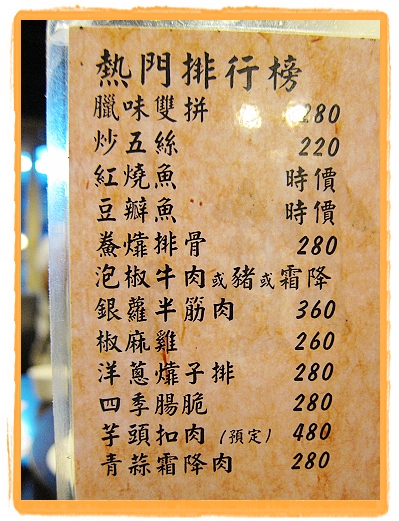 熱門排行榜
臘味雙拼 280
炒五絲 220
紅燒魚 時價
豆瓣魚 時價
鯗㸆排骨 280
泡椒牛肉或豬或霜降
銀蘿半筋肉 360
椒麻雞 260
洋蔥㸆子排 280
四季腸脆 280
芋頭扣肉(預定) 480
青蒜霜降肉 280